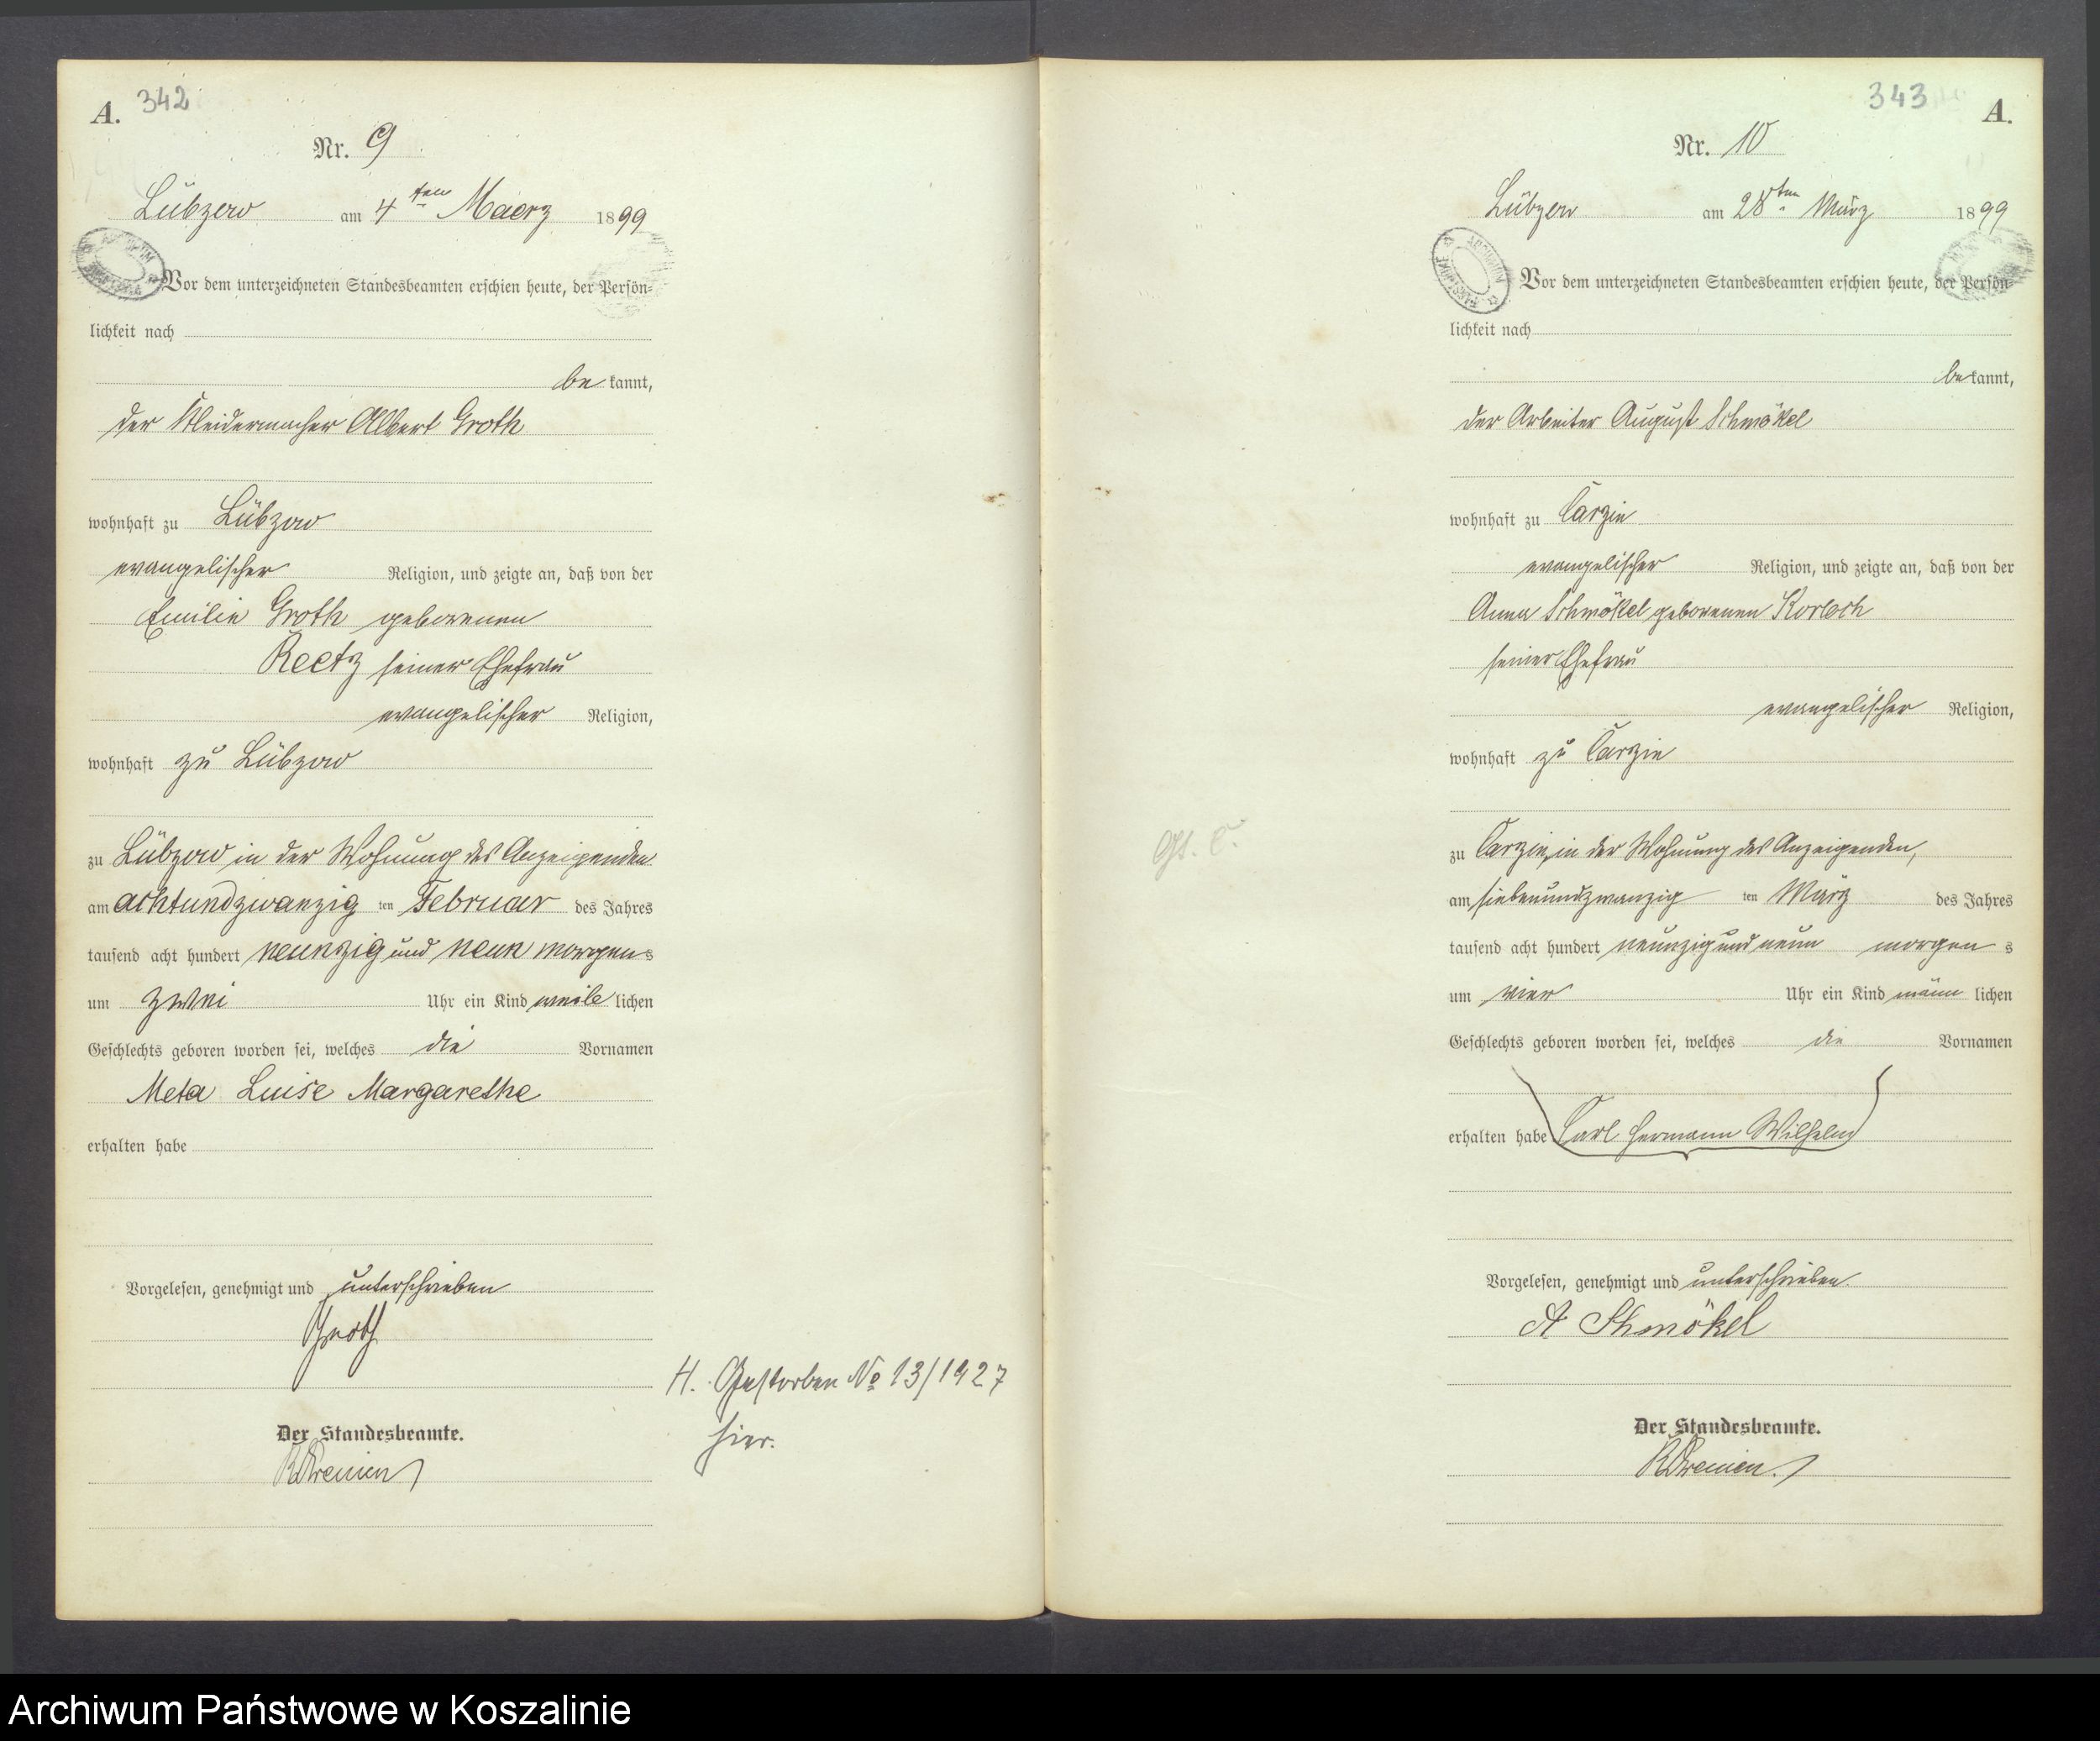 A. 342
Nr. 9
Lübzow am 4ten Maerz 1899
Vor dem unterzeichneten Standesbeamten erschien heute, der Persön-
lichkeit nach
be kannt,
der Kleidermacher Albert Groth
wohnhaft zu Lübzow
evangelischer Religion, und zeigte an, daß von der
Emilie Groth geborenen
Reetz seiner Ehefrau
evangelischer Religion,
wohnhaft zu Lübzow
zu Lübzow in der Wohnung des Anzeigenden
am achtundzwanzig ten Februar des Jahres
tausend acht hundert neunzig und neun morgens
um zwei Uhr ein Kind weib lichen
Geschlechts geboren worden sei, welches die Vornamen
Meta Luise Margarethe
erhalten habe
Vorgelesen, genehmigt und unterschrieben
Groth
Der Standesbeamte.
H. Gestorben No 13/1927
hier.
343 A.
Nr. 10
Lübzow am 28ten März 1899
ARCHIWUM
Vor dem unterzeichneten Standesbeamten erschien heute, der Persön-
lichkeit nach
be kannt,
der Arbeiter August Schmökel
wohnhaft zu Carzin
evangelischer Religion, und zeigte an, daß von der
Anna Schmökel geborenen Korlech
seiner Ehefrau
evangelischer Religion,
wohnhaft zu Carzin
zu Carzin, in der Wohnung des Anzeigenden,
am siebenundzwanzig ten März des Jahres
tausend acht hundert neunzig und neun morgen s
um vier Uhr ein Kind männ lichen
Geschlechts geboren worden sei, welches die Vornamen
erhalten habe Carl Hermann Wilhelm
Vorgelesen, genehmigt und unterschrieben
A Schmökel
Der Standesbeamte.
Archiwum Państwowe w Koszalinie